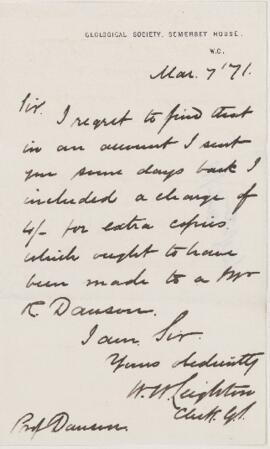 GEOLOGICAL SOCIETY, SOMERSET HOUSE.
W.C.
Mar. 7 '71.
Sir.
I regret to find that
in an account I sent
you some days back I
included a charge of
4/- for extra copies
which ought to have
been made to a Mr
R. Dawson.
I am, Sir.
Yours obediently
W. W. Leighton
Clerk G.S.
Prof Dawson.